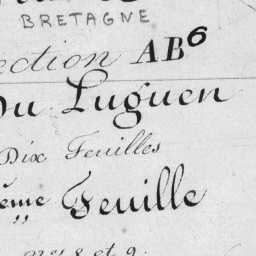 BRETAGNE
ection AB6
Du Luguen
Dix Feuilles
ème Feuille
nos 8 et 9.